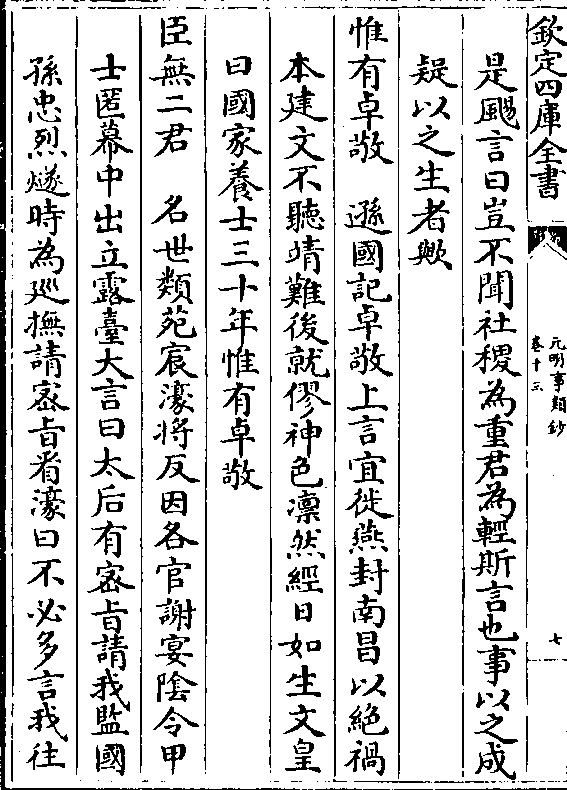 欽定四庫全書
元明事類鈔
卷十三
七
是颺言曰豈不聞社稷為重君為輕斯言也事以之成
疑以之生者歟
惟有卓敬　遜國記卓敬上言宜徙燕封南昌以絕禍
本建文不聽靖難後就僇神色凛然經日如生文皇
曰國家養士三十年惟有卓敬
臣無二君　名世類苑宸濠将反因各官謝宴陰令甲
士匿幕中出立露臺大言曰太后有宻旨請我監國
孫忠烈燧時為廵撫請宻旨看濠曰不必多言我往